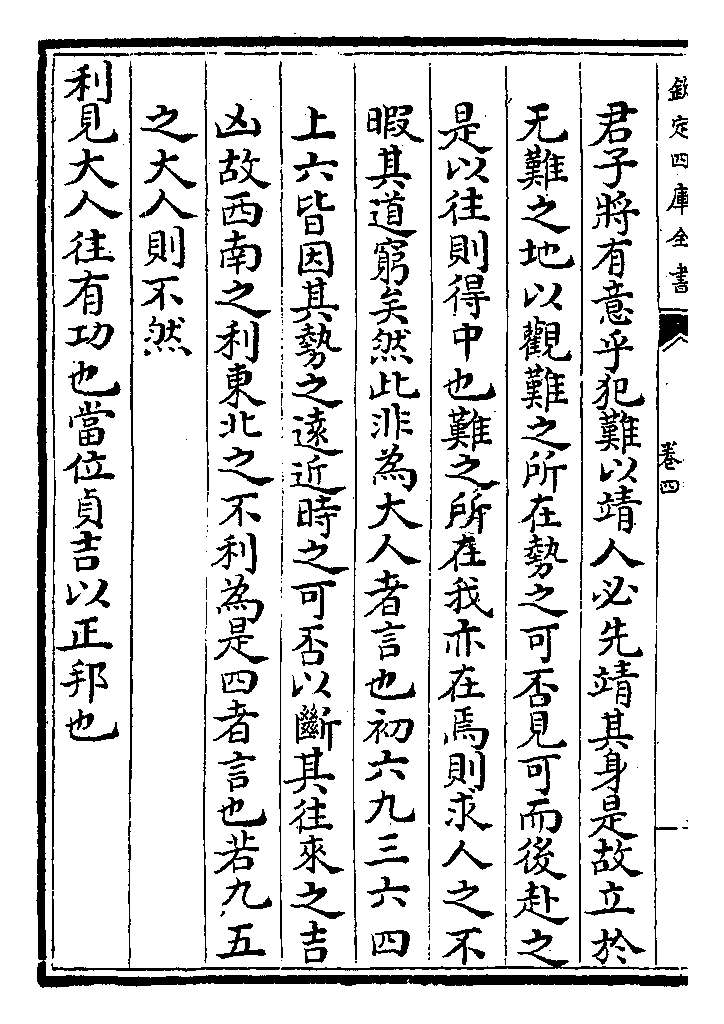 欽定四庫全書
卷四
君子將有意乎犯難以靖人必先靖其身是故立於
无難之地以觀難之所在勢之可否見可而後赴之
是以往則得中也難之所在我亦在焉則求人之不
暇其道窮矣然此非為大人者言也初六九三六四
上六皆因其勢之遠近時之可否以斷其往來之吉
凶故西南之利東北之不利為是四者言也若九五
之大人則不然
利見大人往有功也當位貞吉以正邦也